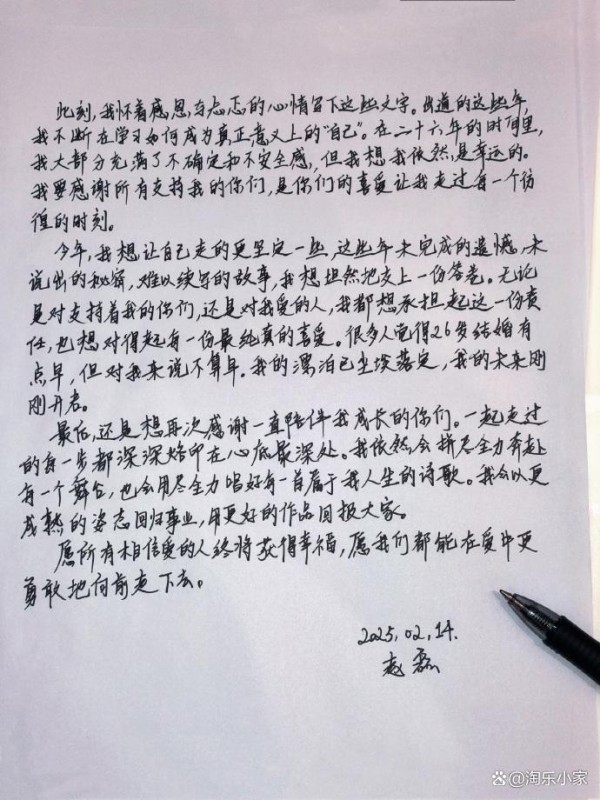 此刻,我怀着感恩与忐忑的心情留下这些文字。出道的这些年,
我不断在学习如何成为真正意义上的“自己”。在二十六年的时间里,
我大部分充满了不确定和不安全感,但我想我依然是幸运的。
我要感谢所有支持我的你们,是你们的喜爱让我走过每一个彷
徨的时刻。
今年,我想让自己走的更坚定一些,这些年未完成的遗憾,未
说出的秘密,难以续写的故事,我想坦然地交上一份答卷。无论
是对支持着我的你们,还是对我爱的人,我都想承担起这一份责
任,也想对得起每一份最纯真的喜爱。很多人觉得26岁结婚有
点早,但对我来说不算早。我的漂泊已尘埃落定,我的未来刚
刚开启。
最后,还是想再次感谢一直陪伴我成长的你们。一起走过
的每一步都深深烙印在心底最深处。我依然会拼尽全力奔赴
每一个舞台,也会用尽全力唱好每一首属于我人生的诗歌。我会以更
成熟的姿态回归事业,用更好的作品回报大家。
愿所有相信爱的人终将获得幸福,愿我们都能在爱中更
勇敢地向前走下去。
2025.02.14.
赵磊
淘乐小家